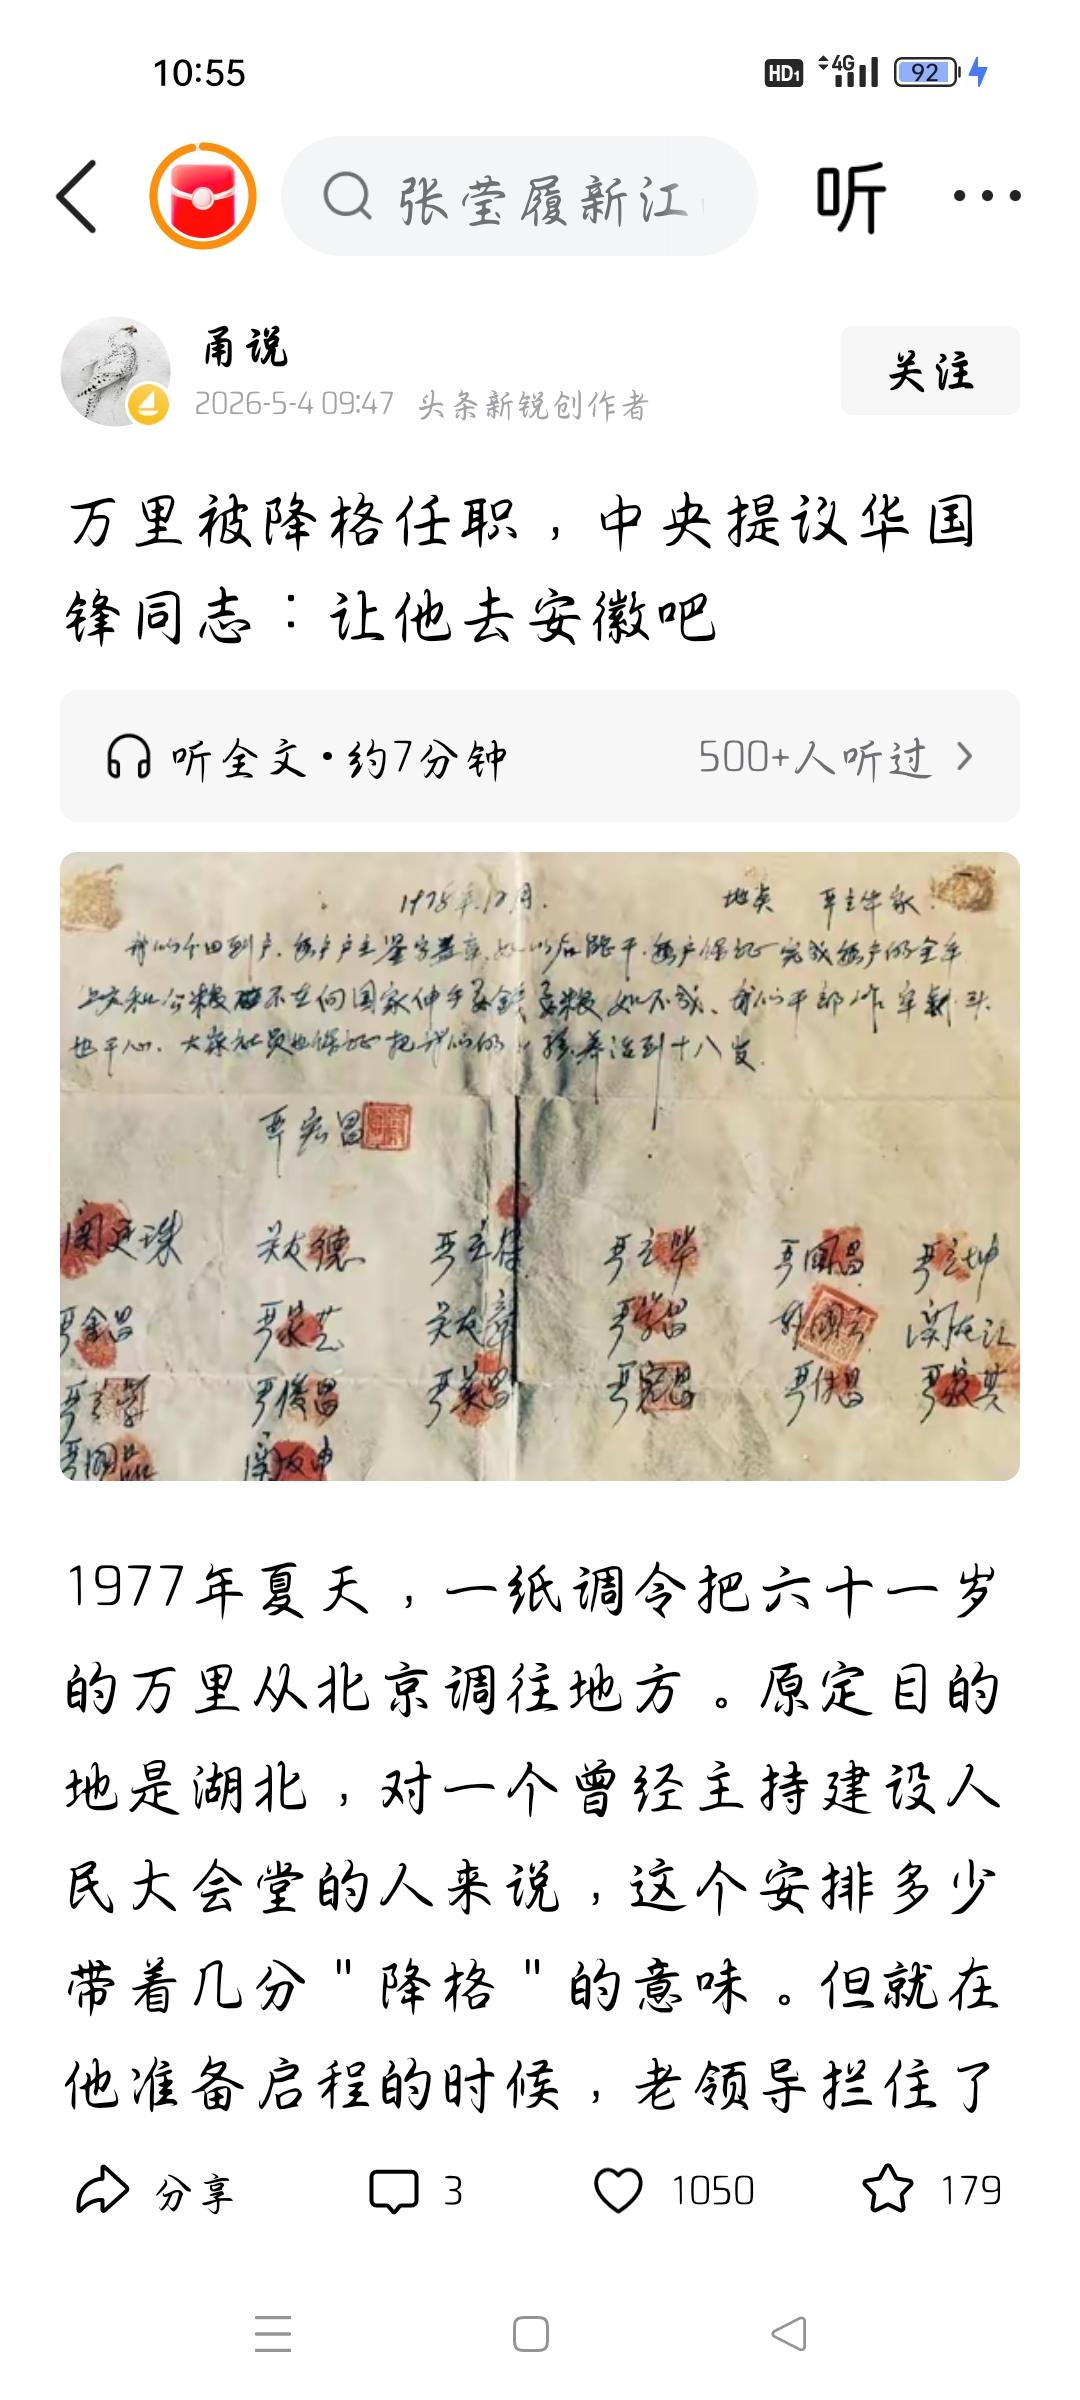 10:55
HD1 4G 92
张莹履新江
听
甬说
2026-5-4 09:47 头条新锐创作者
关注
万里被降格任职，中央提议华国
锋同志：让他去安徽吧
听全文·约7分钟 500+人听过
1978年12月. 地点 严立华家
我们分田到户.每户户主签字盖章.如以后能干.每户保证完成每户的全年
上交和公粮 不在向国家伸手要钱要粮 如不成、我们干部作牢剎头
也干心. 大家社员也保证把我们的小孩养活到十八岁.
严宏昌
关友德 严立华 严国昌 严立坤
严金昌 严家芝 关友章 严学昌
严俊昌 严美昌 严宏昌 严付昌 严家其
1977年夏天，一纸调令把六十一岁
的万里从北京调往地方。原定目的
地是湖北，对一个曾经主持建设人
民大会堂的人来说，这个安排多少
带着几分"降格"的意味。但就在
他准备启程的时候，老领导拦住了
分享 3 1050 179